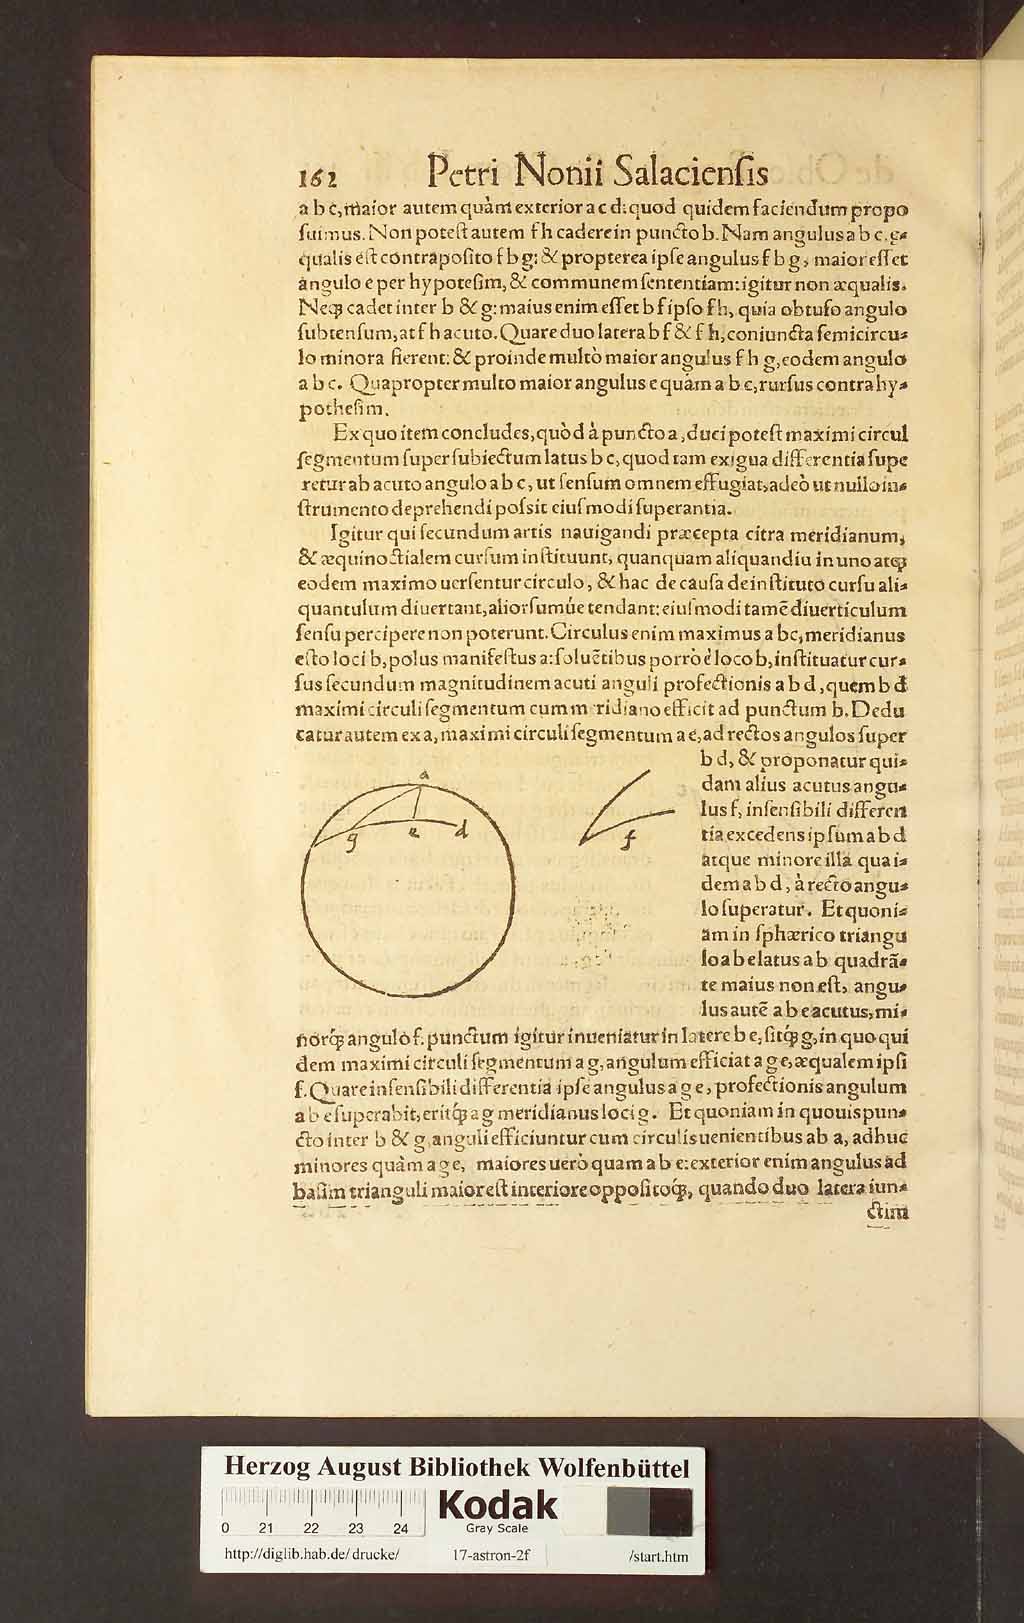 162 Petri Nonii Salaciensis
a b c, maior autem quàm exterior a c d: quod quidem faciendum propo
suimus. Non potest autem f h cadere in puncto b. Nam angulus a b c, ę-
qualis est contraposito f b g: & propterea ipse angulus f b g, maior esset
angulo e per hypotesim, & communem sententiam: igitur non æqualis.
Neqꝫ cadet inter b & g: maius enim esset b f ipso f h, quia obtuso angulo
subtensum, at f h acuto. Quare duo latera b f & f h, coniuncta semicircu-
lo minora fierent: & proinde multò maior angulus f h g, eodem angulo
a b c. Quapropter multo maior angulus e quàm a b c, rursus contra hy-
pothesim.
Ex quo item concludes, quòd à puncto a, duci potest maximi circul
segmentum super subiectum latus b c, quod tam exigua differentia supe
retur ab acuto angulo a b c, ut sensum omnem effugiat, adeò ut nullo in-
strumento deprehendi possit eiusmodi superantia.
Igitur qui secundum artis nauigandi præcepta citra meridianum,
& æquinoctialem cursum instituunt, quanquam aliquandiu in uno atqꝫ
eodem maximo uersentur circulo, & hac de causa de instituto cursu ali-
quantulum diuertant, aliorsumúe tendant: eiusmodi tamē diuerticulum
sensu percipere non poterunt. Circulus enim maximus a b c, meridianus
esto loci b, polus manifestus a: soluētibus porrò è loco b, instituatur cur-
sus secundum magnitudinem acuti anguli profectionis a b d, quem b d
maximi circuli segmentum cum meridiano efficit ad punctum b. Dedu
catur autem ex a, maximi circuli segmentum a e, ad rectos angulos super
b d, & proponatur qui-
dam alius acutus angu-
lus f, insensibili differen
tia excedens ipsum a b d
atque minore illa qua i-
dem a b d, à recto angu-
lo superatur. Et quoni-
am in sphærico triangu
lo a b e latus a b quadrā-
te maius non est, angu-
lus autē a b e acutus, mi-
a
g
e
d
f
norqꝫ angulo f. punctum igitur inueniatur in latere b e, sitqꝫ g, in quo qui
dem maximi circuli segmentum a g, angulum efficiat a g e, æqualem ipsi
f. Quare insensibili differentia ipse angulus a g e, profectionis angulum
a b e superabit, eritqꝫ a g meridianus loci g. Et quoniam in quouis pun-
cto inter b & g, anguli efficiuntur cum circulis uenientibus ab a, adhuc
minores quàm a g e, maiores uerò quam a b e: exterior enim angulus ad
basim trianguli maior est interiore oppositoqꝫ, quando duo latera iun-
ctim
Herzog August Bibliothek Wolfenbüttel
0 21 22 23 24
Kodak
Gray Scale
http://diglib.hab.de/drucke/ 17-astron-2f /start.htm